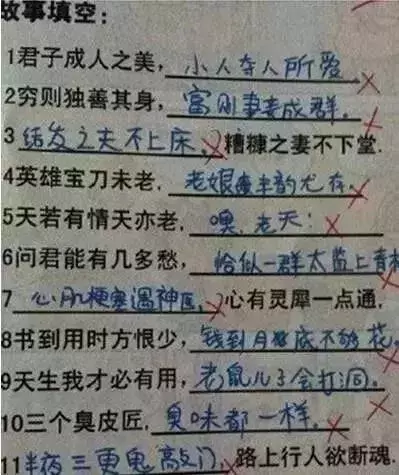 故事填空：
1君子成人之美，小人夺人所爱。
2穷则独善其身，富则妻妾成群。
3结发之夫不上床，糟糠之妻不下堂.
4英雄宝刀未老，老娘风韵尤存。
5天若有情天亦老，噢，老天！
6问君能有几多愁，恰似一群太监上青楼
7心肌梗塞遇神医，心有灵犀一点通，
8书到用时方恨少，钱到月底不够花。
9天生我才必有用，老鼠儿子会打洞。
10三个臭皮匠，臭味都一样。
11半夜三更鬼敲门，路上行人欲断魂.